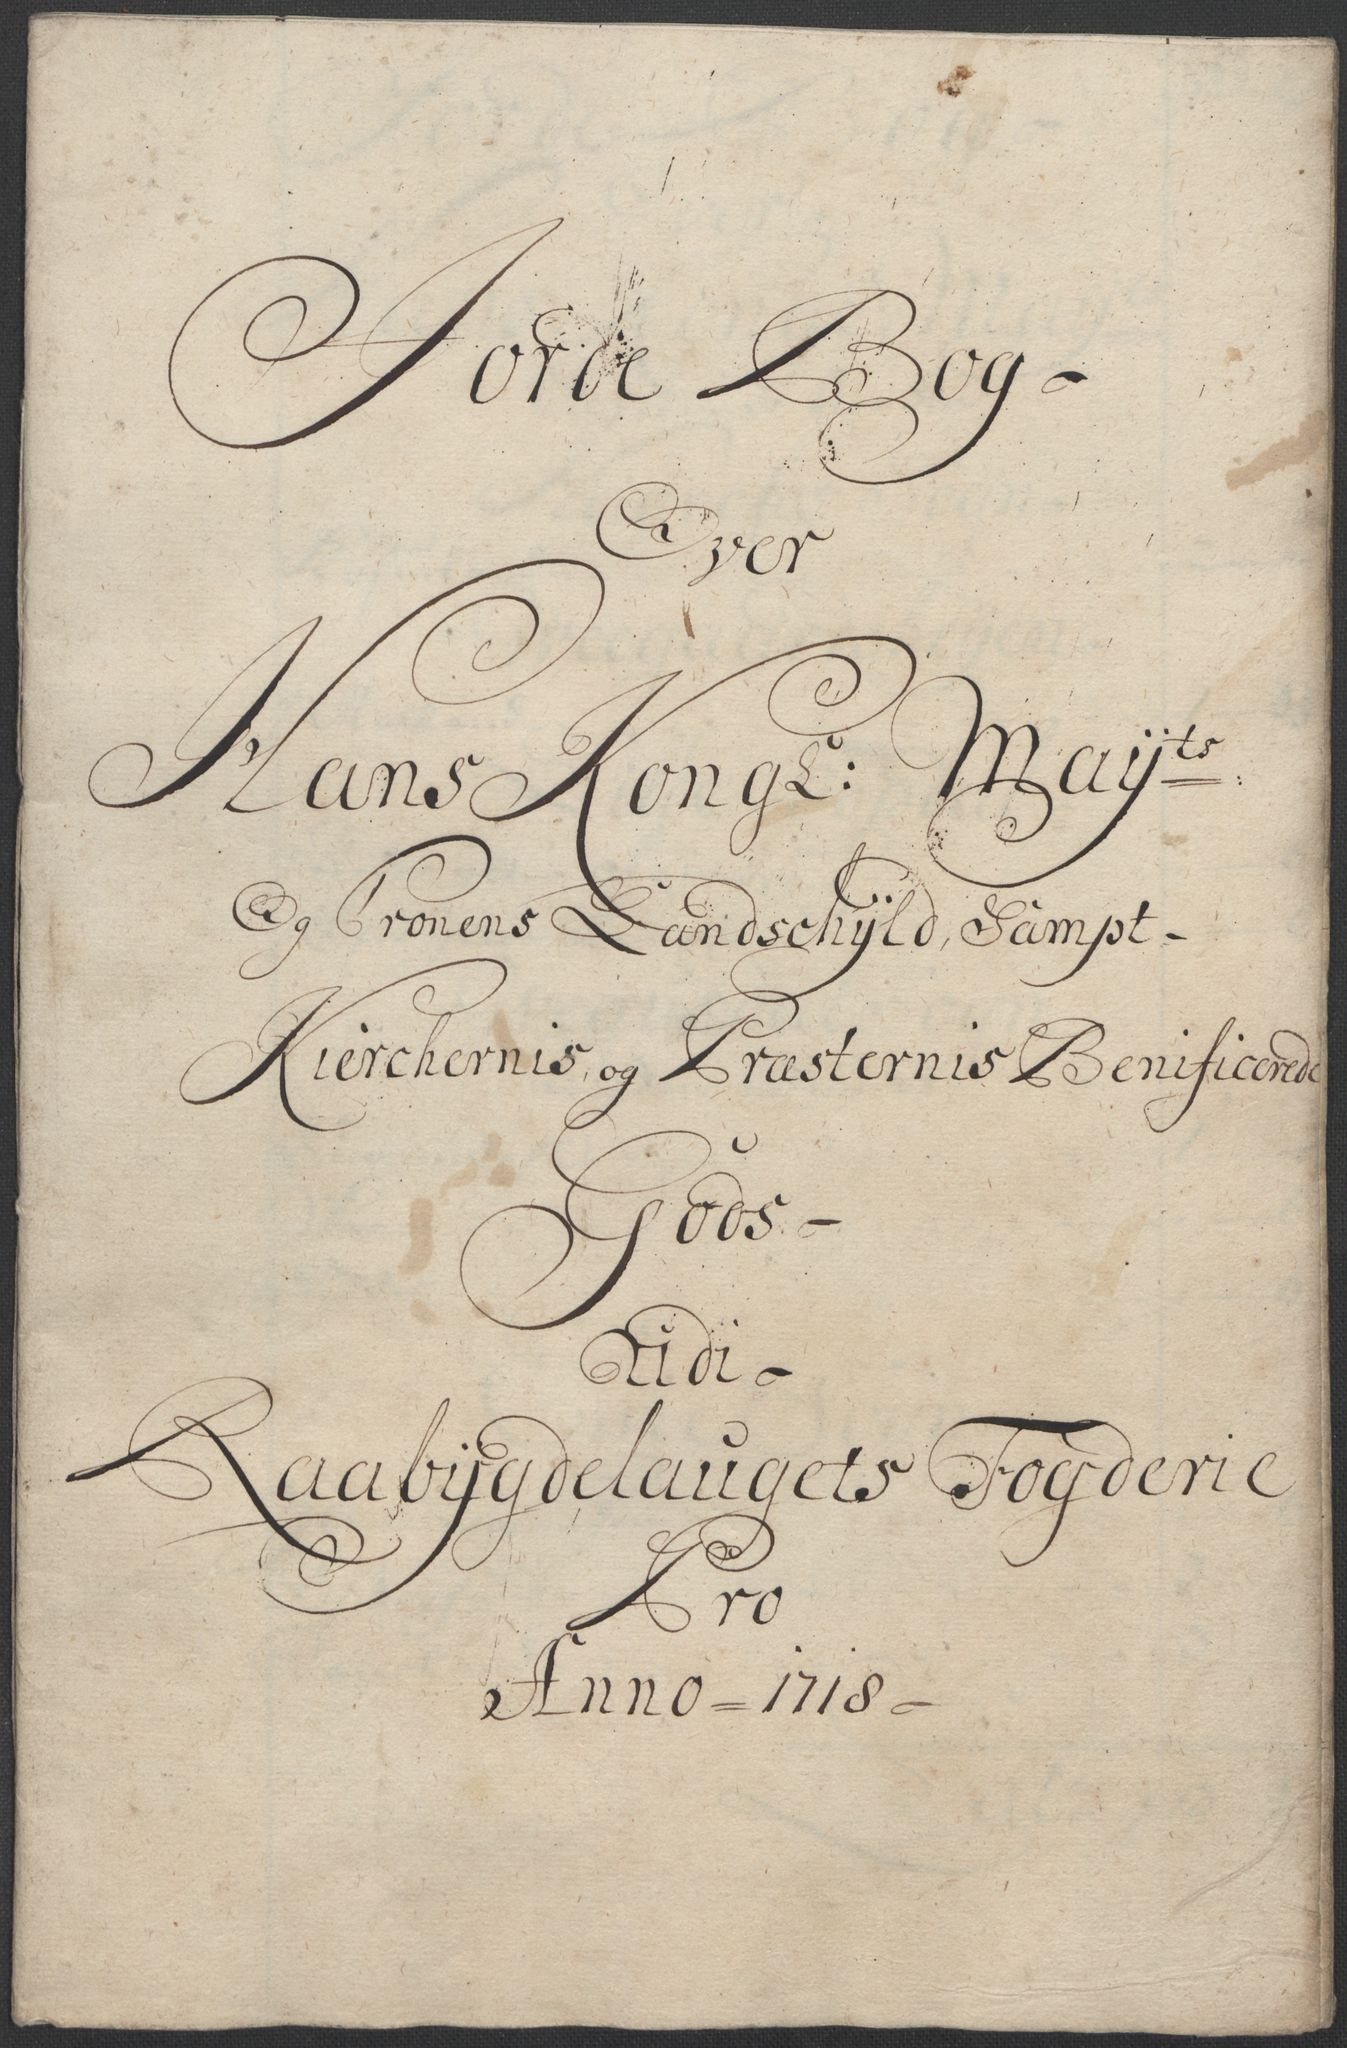 Jorde Bog-
Over
Hans Kongl: Maÿts
Og Cronens Landschÿld, Sampt-
Kierchernis, og Præsternis Benificerede
Gods-
Udi-
Raabÿgdelaugets Fogderie
Pro
Anno = 1718-